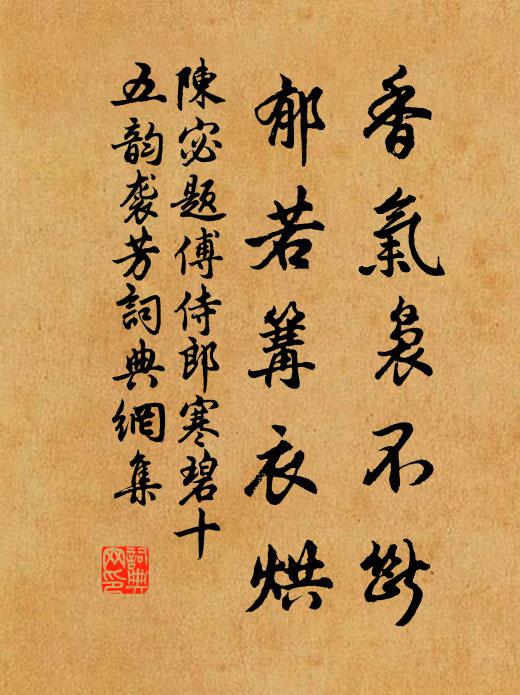 香氣裊不斷
郁若篝衣烘
陳宓題傅侍郎寒碧十
五韵袭芳詞典網集
詞典網印